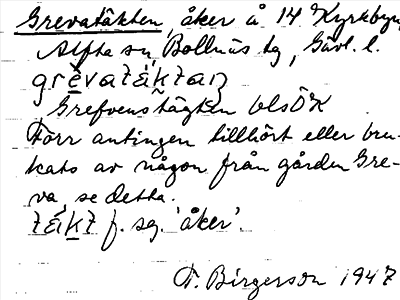 Grevatäkten, åker å 14 Kyrkbyn,
Alfta sn, Bollnäs tg, Gävl. l.
grèvatäktaɲ
Grefvenstägten blsÖK
Förr antingen tillhört eller bru-
kats av någon från gården Gre-
va, se detta.
täkt f. sg. 'åker'.
F. Birgerson 1947